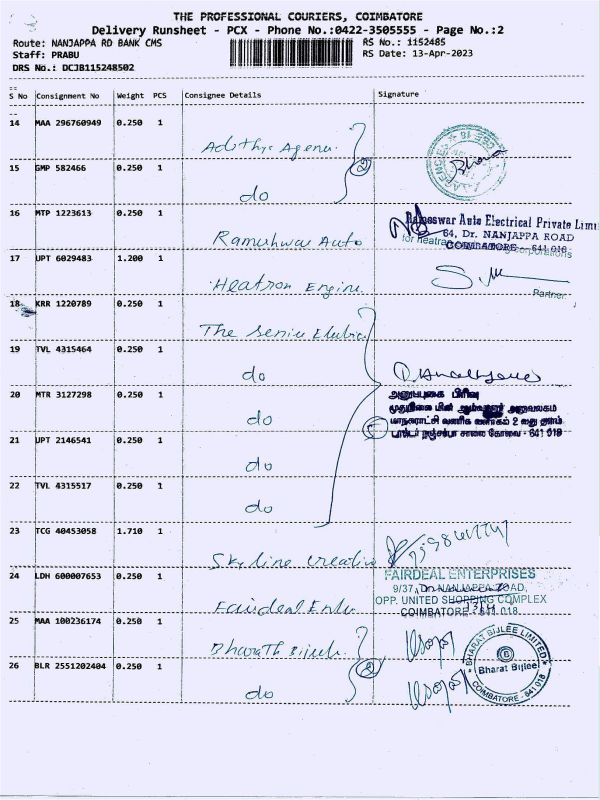 THE PROFESSIONAL COURIERS, COIMBATORE
Delivery Runsheet - PCX - Phone No.:0422-3505555 - Page No.:2
Route: NANJAPPA RD BANK CMS
RS No.: 1152485
Staff: PRABU
RS Date: 13-Apr-2023
DRS No.: DCJB115248502
S No Consignment No Weight PCS Consignee Details Signature
14 MAA 296760949 0.250 1
Adithya Agenci
2
15 GMP 582466 0.250 1
do
16 MTP 1223613 0.250 1
Rameshwar Auto
Rameswar Auto Electrical Private Limi
64, Dr. NANJAPPA ROAD
COIMBATORE - 641 018
17 UPT 6029483 1.200 1
Heatron Engin.
Partner.
18 KRR 1220789 0.250 1
The Senior Eletric
19 TVL 4315464 0.250 1
do
20 MTR 3127298 0.250 1
do
அனுப்புகை பிரிவு
முதுநிலை மின் ஆய்வாளர் அலுவலகம்
மாநகராட்சி வணிக வளாகம் 2 வது தளம்
டாக்டர் நஞ்சப்பா சாலை கோவை - 641 018
5
21 UPT 2146541 0.250 1
do
22 TVL 4315517 0.250 1
do
23 TCG 40453058 1.710 1
Skyline Creative
24 LDH 600007653 0.250 1
Fairdeal Enter
FAIRDEAL ENTERPRISES
9/37, Dr. NANJAPPA ROAD,
OPP. UNITED SHOPPING COMPLEX
COIMBATORE - 641 018.
25 MAA 100236174 0.250 1
Bharath Bijlee
2
BHARAT BIJLEE LIMITED
B
Bharat Bijlee
COIMBATORE - 641 018
26 BLR 2551202404 0.250 1
do